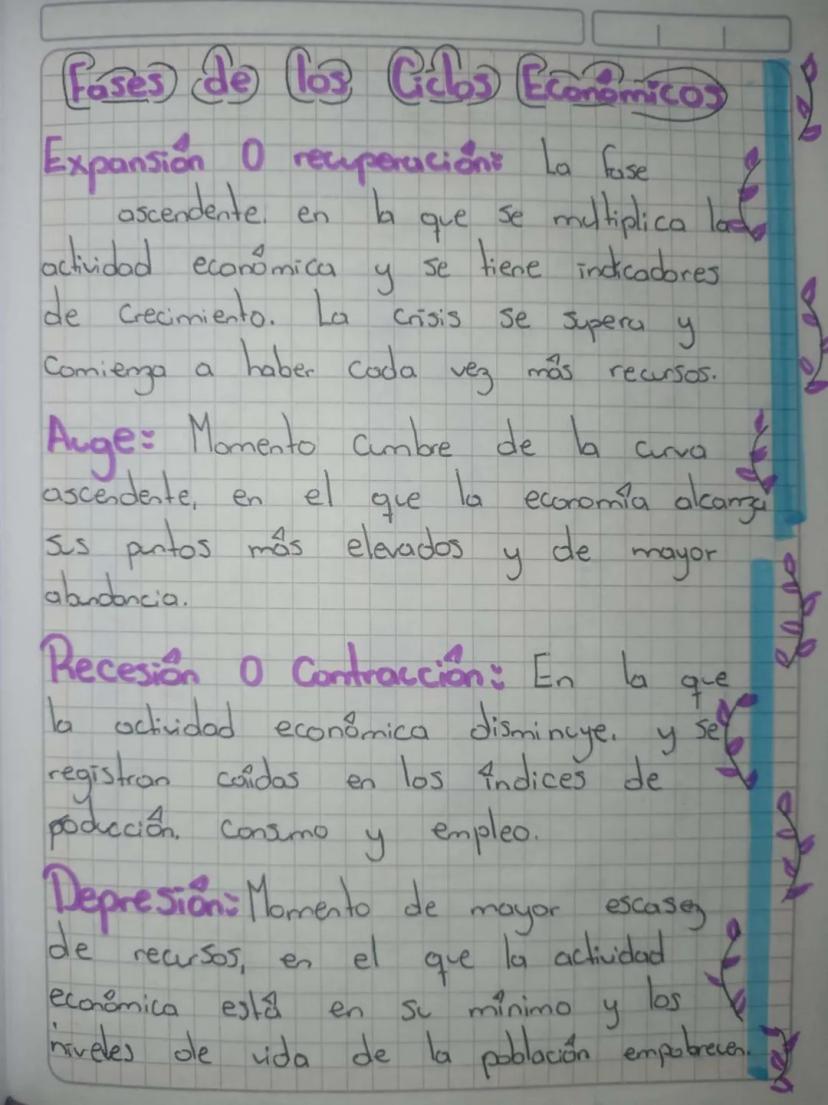 Fases de los Ciclos Económicos
Expansión O recuperación: La fase
ascendente, en la que se multiplica la
actividad económica y se tiene indicadores
de crecimiento. La crisis se supera y
comienza a haber cada vez más recursos.
Auge: Momento cumbre de la curva
ascendente, en el que la economía alcanza
sus puntos más elevados y de mayor
abundancia.
Recesión O Contracción: En la que
la actividad económica disminuye, y se
registran caídas en los índices de
poducción, consumo y empleo.
Depresión: Momento de mayor escasez
de recursos, en el que la actividad
económica está en su mínimo y los
niveles de vida de la población empobrecen.